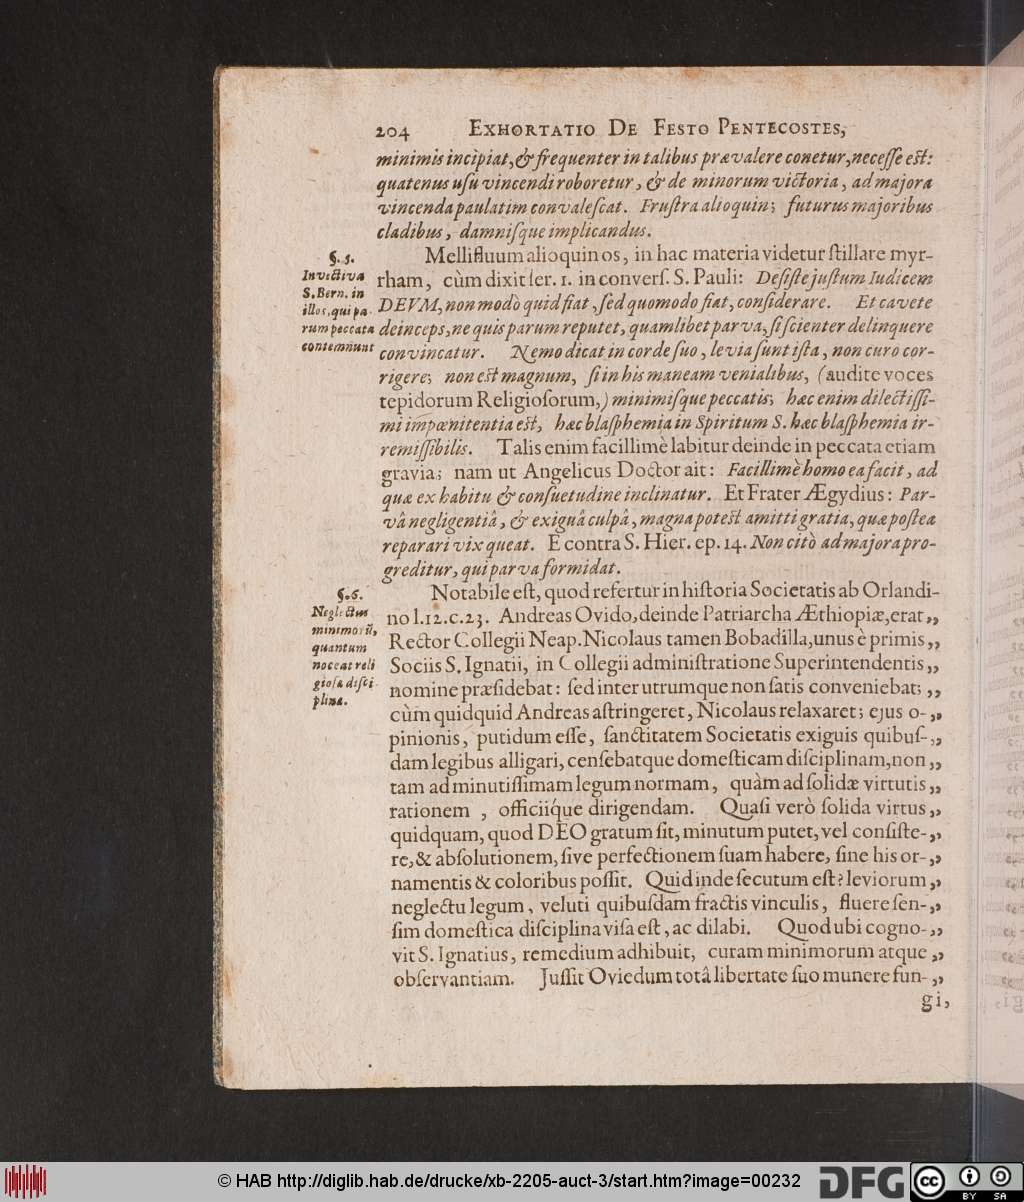 204 EXHORTATIO DE FESTO PENTECOSTES,
minimis incipiat, & frequenter in talibus prævalere conetur, necesſe est:
quatenus uſu vincendi roboretur, & de minorum victoria, ad majora
vincenda paulatim convaleſcat. Fruſtra alioquin; futurus majoribus
cladibus, damniſque implicandus.
§. 5.
Invectiva
S. Bern. in
illos, qui pa-
rum peccata
contemnunt
Mellifluum alioquin os, in hac materia videtur ſtillare myr-
rham, cùm dixit ſer. 1. in converſ. S. Pauli: Deſiſte juſtum Iudicem
DEVM, non modò quid fiat, ſed quomodo fiat, conſiderare. Et cavete
deinceps, ne quis parum reputet, quamlibet parva, ſi ſcienter delinquere
convincatur. Nemo dicat in corde ſuo, levia ſunt iſta, non curo cor-
rigere; non est magnum, ſi in his maneam venialibus, (audite voces
tepidorum Religioſorum,) minimiſque peccatis; hæc enim dilectiſſi-
mi impœnitentia est, hæc blaſphemia in Spiritum S. hæc blaſphemia ir-
remiſſibilis. Talis enim facillimè labitur deinde in peccata etiam
gravia; nam ut Angelicus Doctor ait: Facillimè homo ea facit, ad
quæ ex habitu & conſuetudine inclinatur. Et Frater Ægydius: Par-
vâ negligentiâ, & exiguâ culpâ, magna potest amitti gratia, quæ poſtea
reparari vix queat. E contra S. Hier. ep. 14. Non citò ad majora pro-
greditur, qui parva formidat.
§. 6.
Neglectus
minimorū,
quantum
noceat reli
gioſæ diſci
plinæ.
Notabile eſt, quod refertur in hiſtoria Societatis ab Orlandi-
no l. 12. c. 23. Andreas Ovido, deinde Patriarcha Æthiopiæ, erat „
Rector Collegii Neap. Nicolaus tamen Bobadilla, unus è primis „
Sociis S. Ignatii, in Collegii adminiſtratione Superintendentis „
nomine præſidebat: ſed inter utrumque non ſatis conveniebat; „
cùm quidquid Andreas aſtringeret, Nicolaus relaxaret; ejus o- „
pinionis, putidum eſſe, ſanctitatem Societatis exiguis quibuſ- „
dam legibus alligari, cenſebatque domeſticam diſciplinam, non „
tam ad minutiſſimam legum normam, quàm ad ſolidæ virtutis „
rationem , officiíque dirigendam. Quaſi verò ſolida virtus „
quidquam, quod DEO gratum ſit, minutum putet, vel conſiſte- „
re, & abſolutionem, ſive perfectionem ſuam habere, ſine his or- „
namentis & coloribus poſſit. Quid inde ſecutum eſt? leviorum „
neglectu legum, veluti quibuſdam fractis vinculis, fluere ſen- „
ſim domeſtica diſciplina viſa eſt, ac dilabi. Quod ubi cogno- „
vit S. Ignatius, remedium adhibuit, curam minimorum atque „
obſervantiam. Juſſit Oviedum totâ libertate ſuo munere fun- „
gi,
© HAB http://diglib.hab.de/drucke/xb-2205-auct-3/start.htm?image=00232
DFG
cc
BY SA